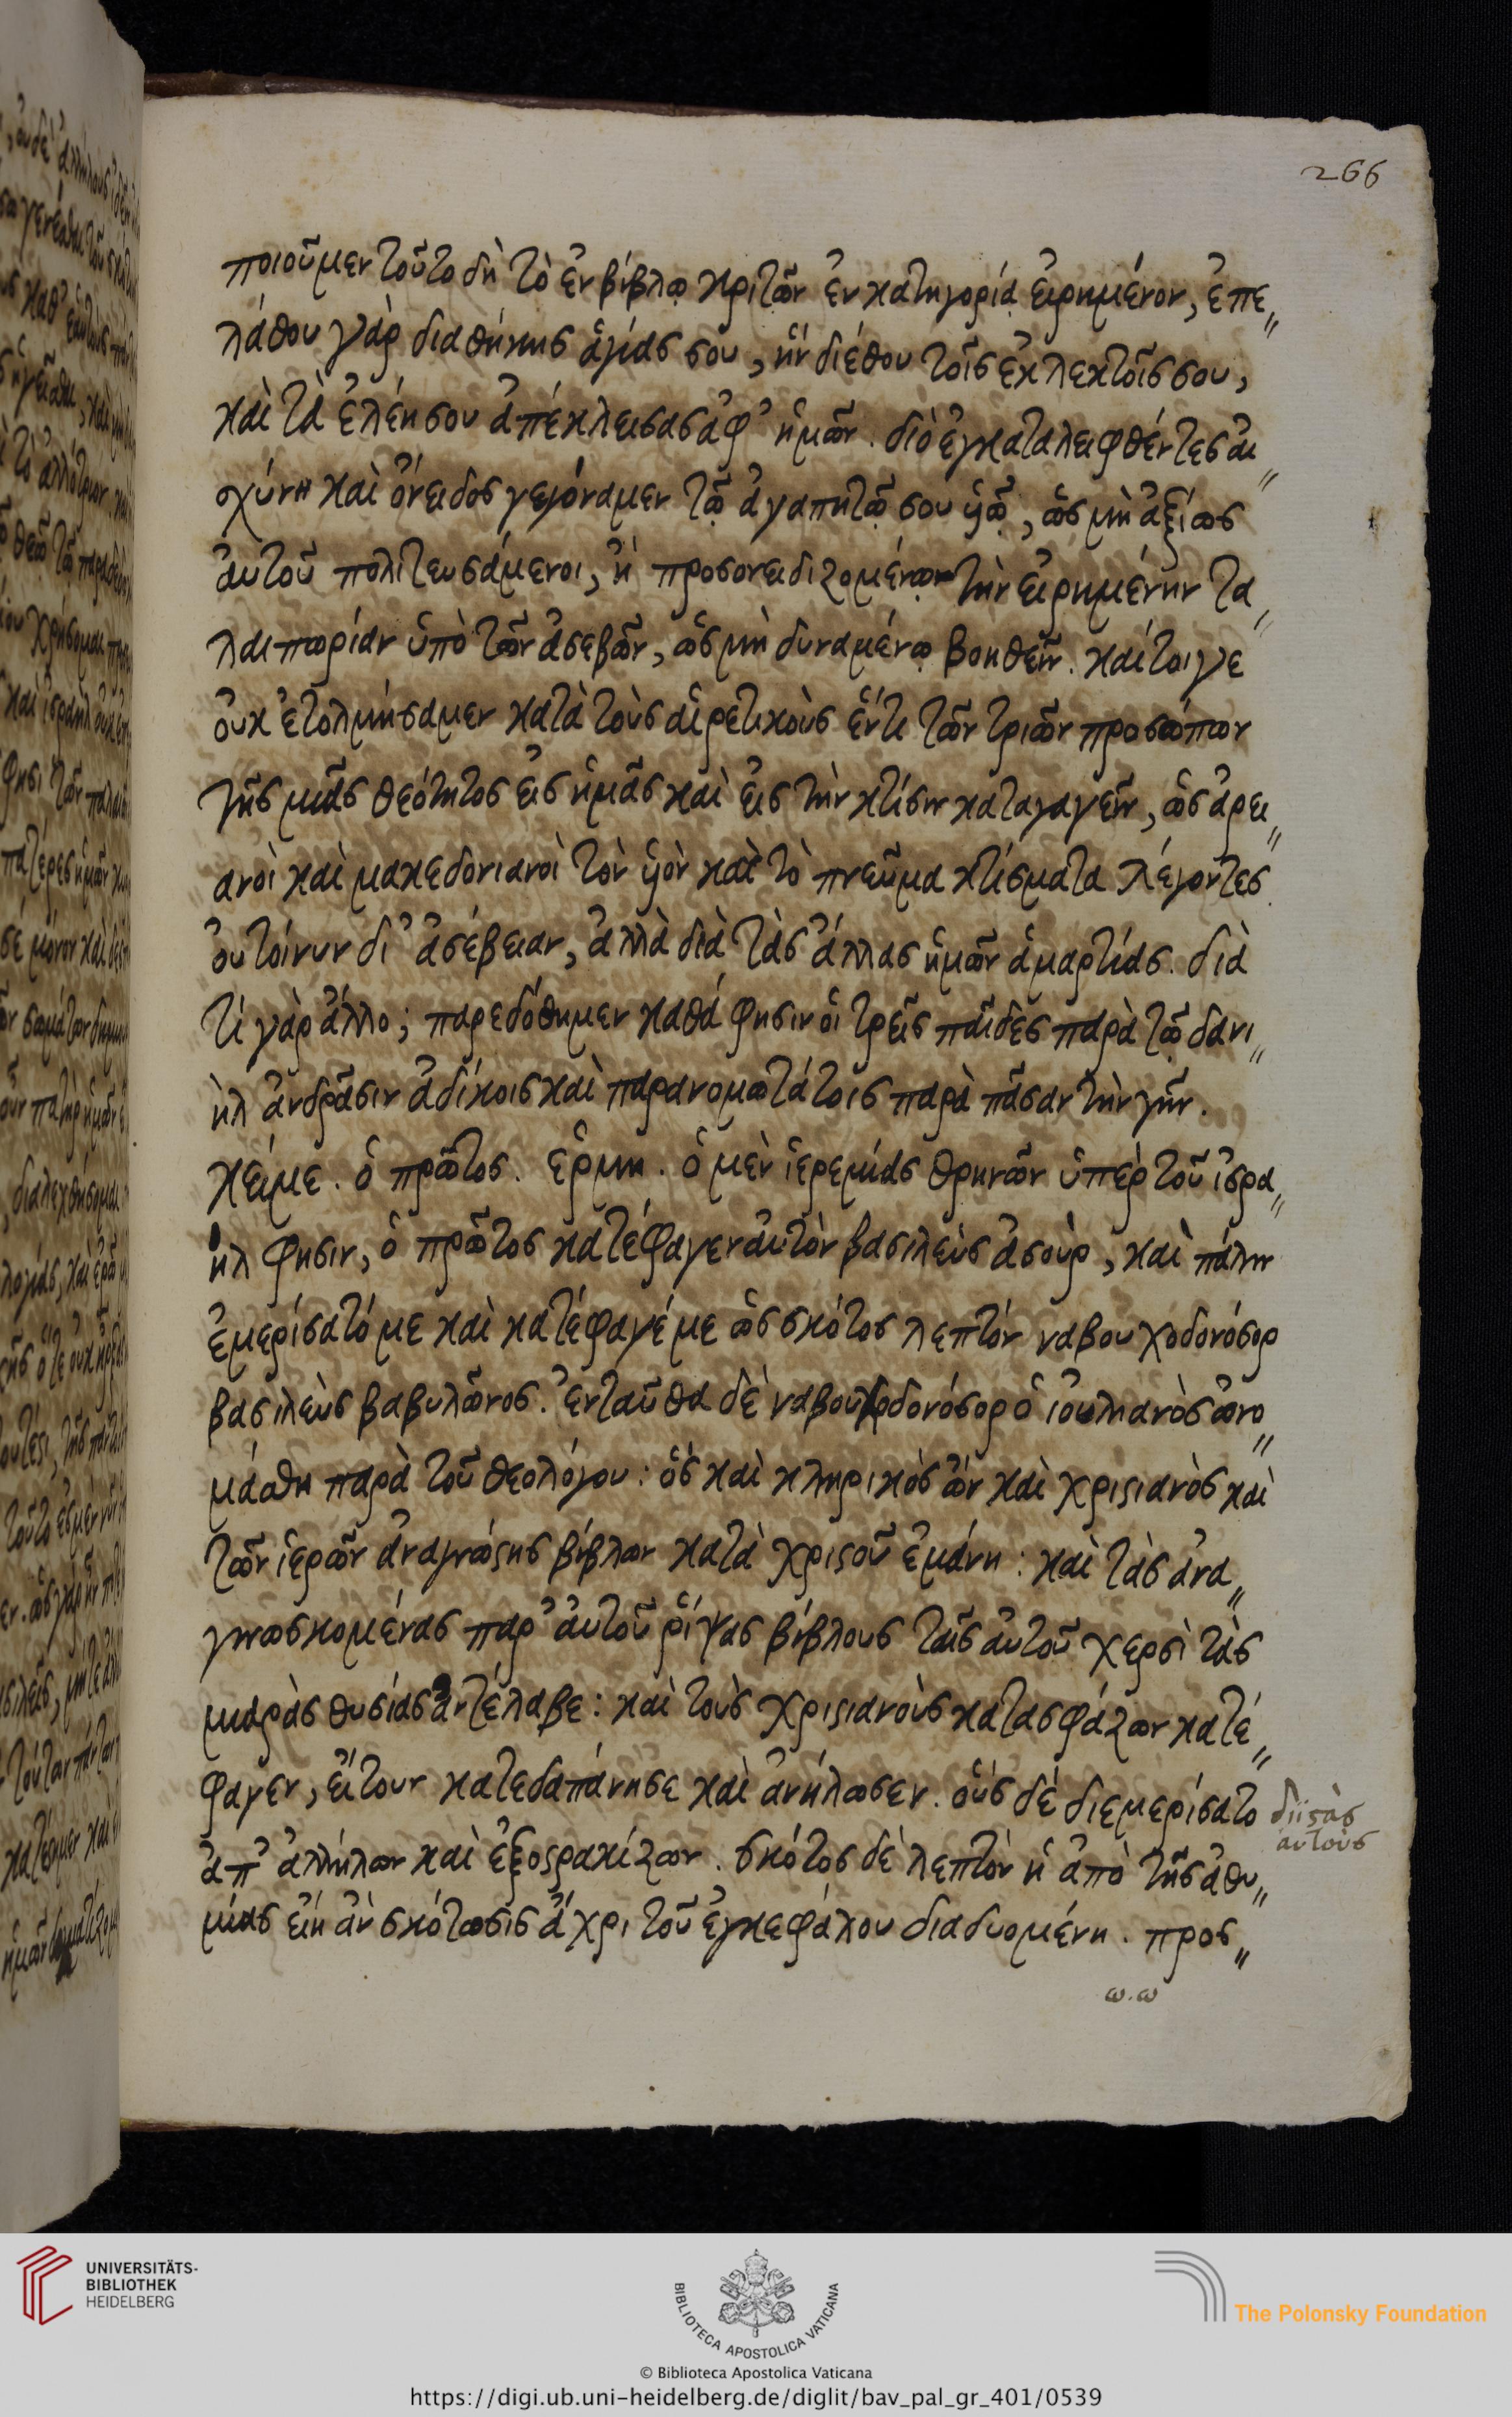 266
ποιοῦμεν τοῦτο δὴ τὸ ἐν βίβλῳ κριτῶν ἐν κατηγορίᾳ εἰρημένον, ἐπε〃
λάθου γὰρ διαθήκης ἁγίας σου, ἣν διέθου τοῖς ἐκλεκτοῖς σου,
καὶ τὰ ἐλέη σου ἀπέκλεισας ἀφ' ἡμῶν. διὸ ἐγκαταλειφθέντες αἰ〃
σχύνη καὶ ὄνειδος γεγόναμεν τῷ ἀγαπητῷ σου ὑῷ, ὡς μὴ ἀξίως
αὐτοῦ πολιτευσάμενοι, ἢ προσονειδιζομένῳ τὴν εἰρημένην τα〃
λαιπωρίαν ὑπὸ τῶν ἀσεβῶν, ὡς μὴ δυναμένῳ βοηθεῖν. καίτοιγε
οὐκ ἐτολμήσαμεν κατὰ τοὺς αἱρετικοὺς ἕν τι τῶν τριῶν προσώπων
τῆς μιᾶς θεότητος εἰς ἡμᾶς καὶ εἰς τὴν κτίσιν καταγαγεῖν, ὡς ἀρει〃
ανοὶ καὶ μακεδονιανοὶ τὸν ὑὸν καὶ τὸ πνεῦμα κτίσματα λέγοντες
οὐ τοίνυν δι' ἀσέβειαν, ἀλλὰ διὰ τὰς ἄλλας ἡμῶν ἁμαρτίας. διὰ
τί γὰρ ἄλλο; παρεδόθημεν καθά φησιν οἱ τρεῖς παῖδες παρὰ τῷ δανι〃
ὴλ ἀνδράσιν ἀδίκοις καὶ παρανομωτάτοις παρὰ πᾶσαν τὴν γῆν.
κείμε. ὁ πρῶτος. ἑρμη. ὁ μὲν ἱερεμίας θρηνῶν ὑπὲρ τοῦ ἰσρα〃
ήλ φησιν, ὁ πρῶτος κατέφαγεν αὐτὸν βασιλεὺς ἀσοὺρ, καὶ πάλιν
ἐμερίσατό με καὶ κατέφαγέ με ὡς σκότος λεπτόν ναβουχοδονόσορ
βασιλεὺς βαβυλῶνος. ἐνταῦθα δὲ ναβουχοδονόσορ ὁ ἰουλιανὸς ὠνο〃
μάσθη παρὰ τοῦ θεολόγου: ὃς καὶ κληρικὸς ὢν καὶ χριστιανὸς καὶ
τῶν ἱερῶν ἀναγνώστης βίβλων κατὰ χριστοῦ ἐμάνη: καὶ τὰς ἀνα〃
γινωσκομένας παρ' αὐτοῦ ῥίψας βίβλους ταῖς αὐτοῦ χερσὶ τὰς
μιαρὰς θυσίας ἀντέλαβε: καὶ τοὺς χριστιανοὺς κατασφάζων κατέ〃
φαγεν, εἴτουν κατεδαπάνησε καὶ ἀνήλωσεν. οὓς δέ διεμερίσατο διϊστὰς
αὐτοὺς
ἀπ' ἀλλήλων καὶ ἐξοστρακίζων. σκότος δὲ λεπτὸν ἡ ἀπὸ τῆς ἀθυ〃
μίας εἴη ἂν σκότωσις ἄχρι τοῦ ἐγκεφάλου διαδυομένη. προσ〃
ω.ω
UNIVERSITÄTS-
BIBLIOTHEK
HEIDELBERG
BIBLIOTECA APOSTOLICA VATICANA
The Polonsky Foundation
© Biblioteca Apostolica Vaticana
https://digi.ub.uni-heidelberg.de/diglit/bav_pal_gr_401/0539